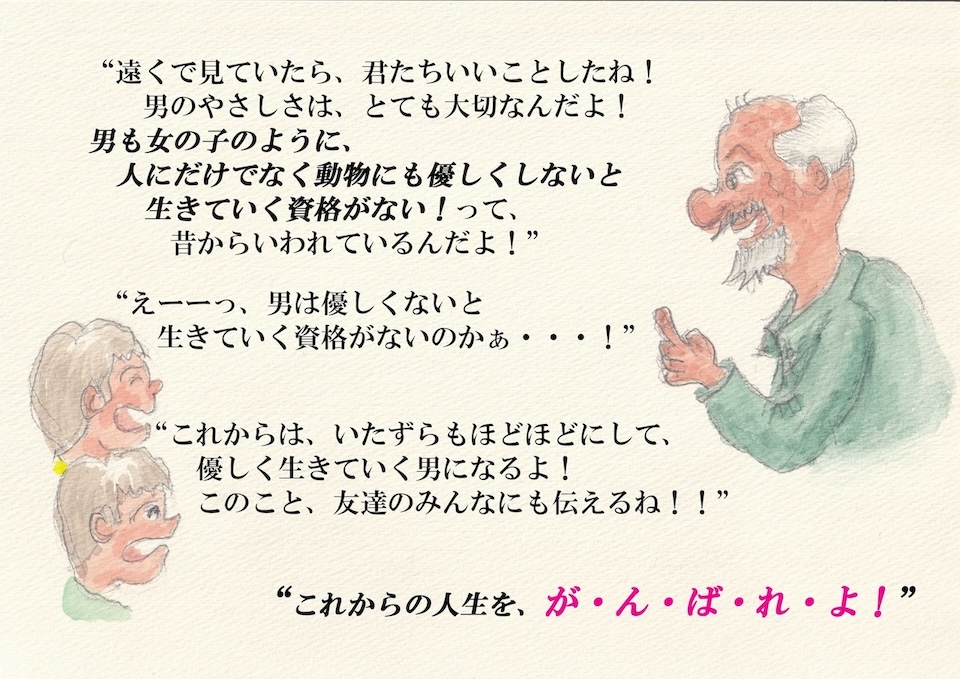 “遠くで見ていたら、君たちいいことしたね！
男のやさしさは、とても大切なんだよ！
男も女の子のように、
人にだけでなく動物にも優しくしないと
生きていく資格がない！って、
昔からいわれているんだよ！”
“えーーっ、男は優しくないと
生きていく資格がないのかぁ・・・！”
“これからは、いたずらもほどほどにして、
優しく生きていく男になるよ！
このこと、友達のみんなにも伝えるね！！”
“これからの人生を、が・ん・ば・れ・よ！”